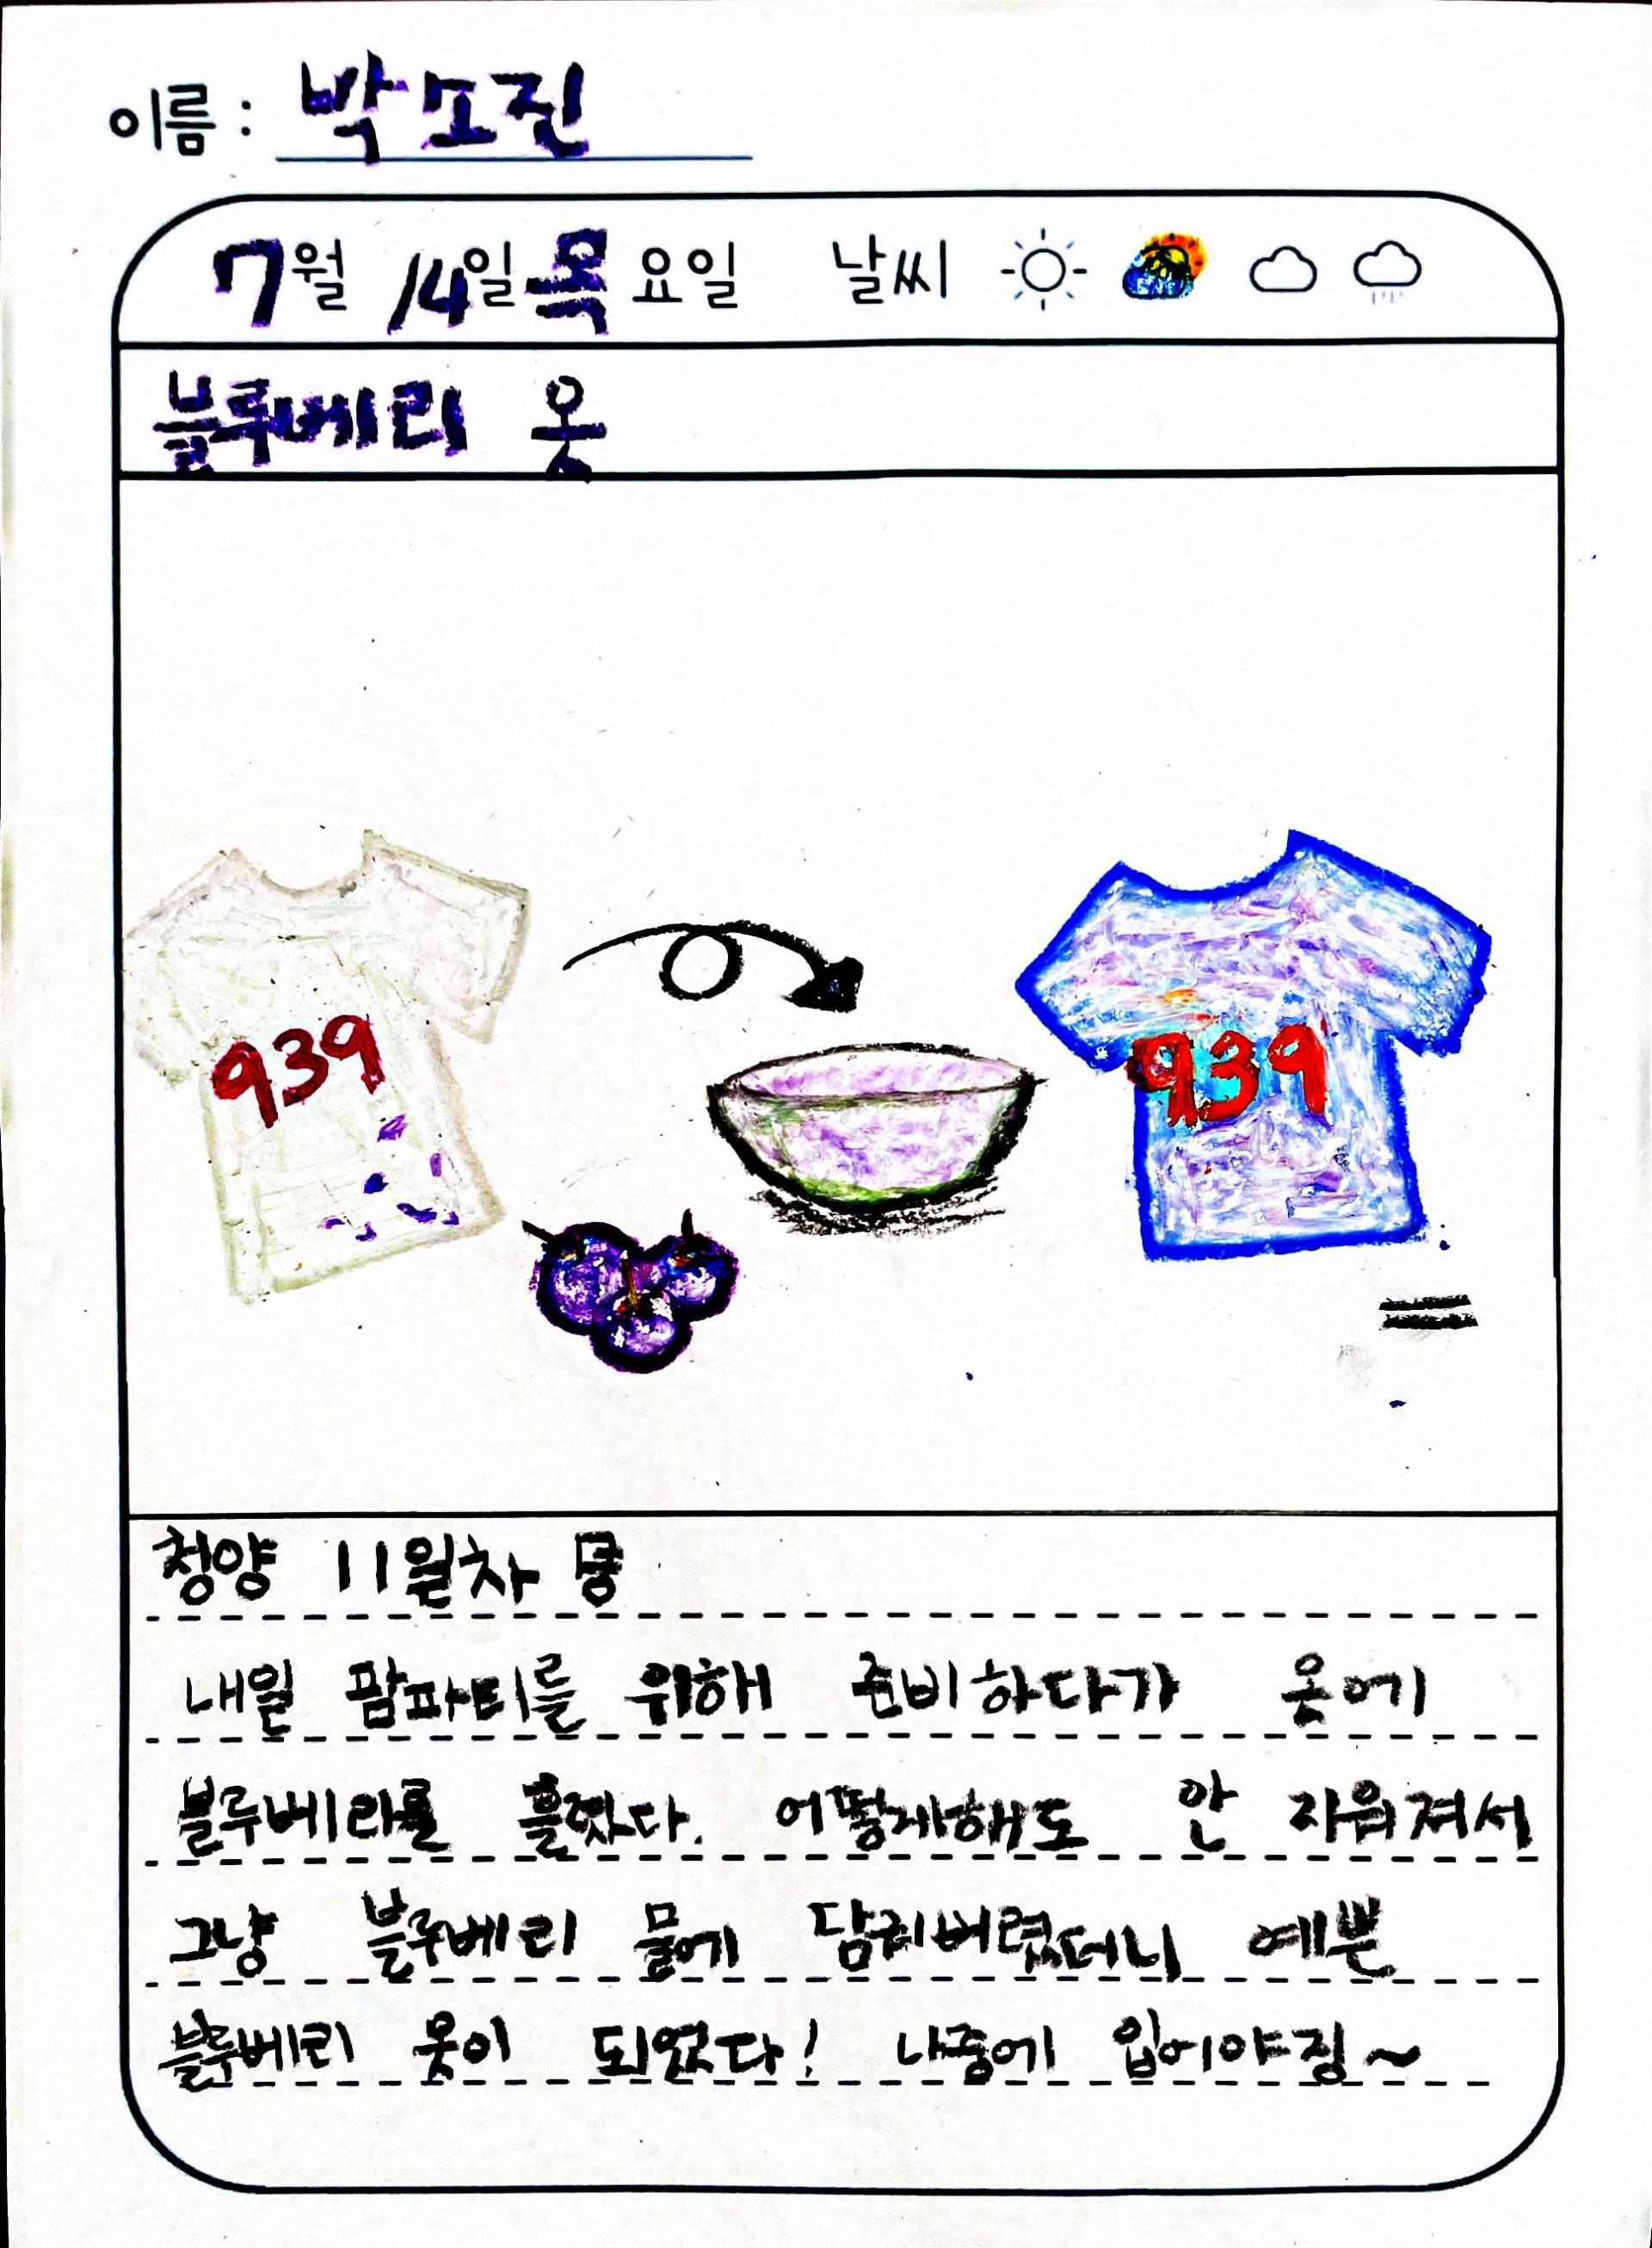 이름 : 박소진
7월 14일 목요일 날씨
블루베리 옷
939
939
청양 11일차
내일 팜파티를 위해 준비하다가 옷에
블루베리를 흘렸다. 어떻게해도 안 지워져서
그냥 블루베리 물에 담궈버렸더니 예쁜
블루베리 옷이 되었다! 나중에 입어야징~